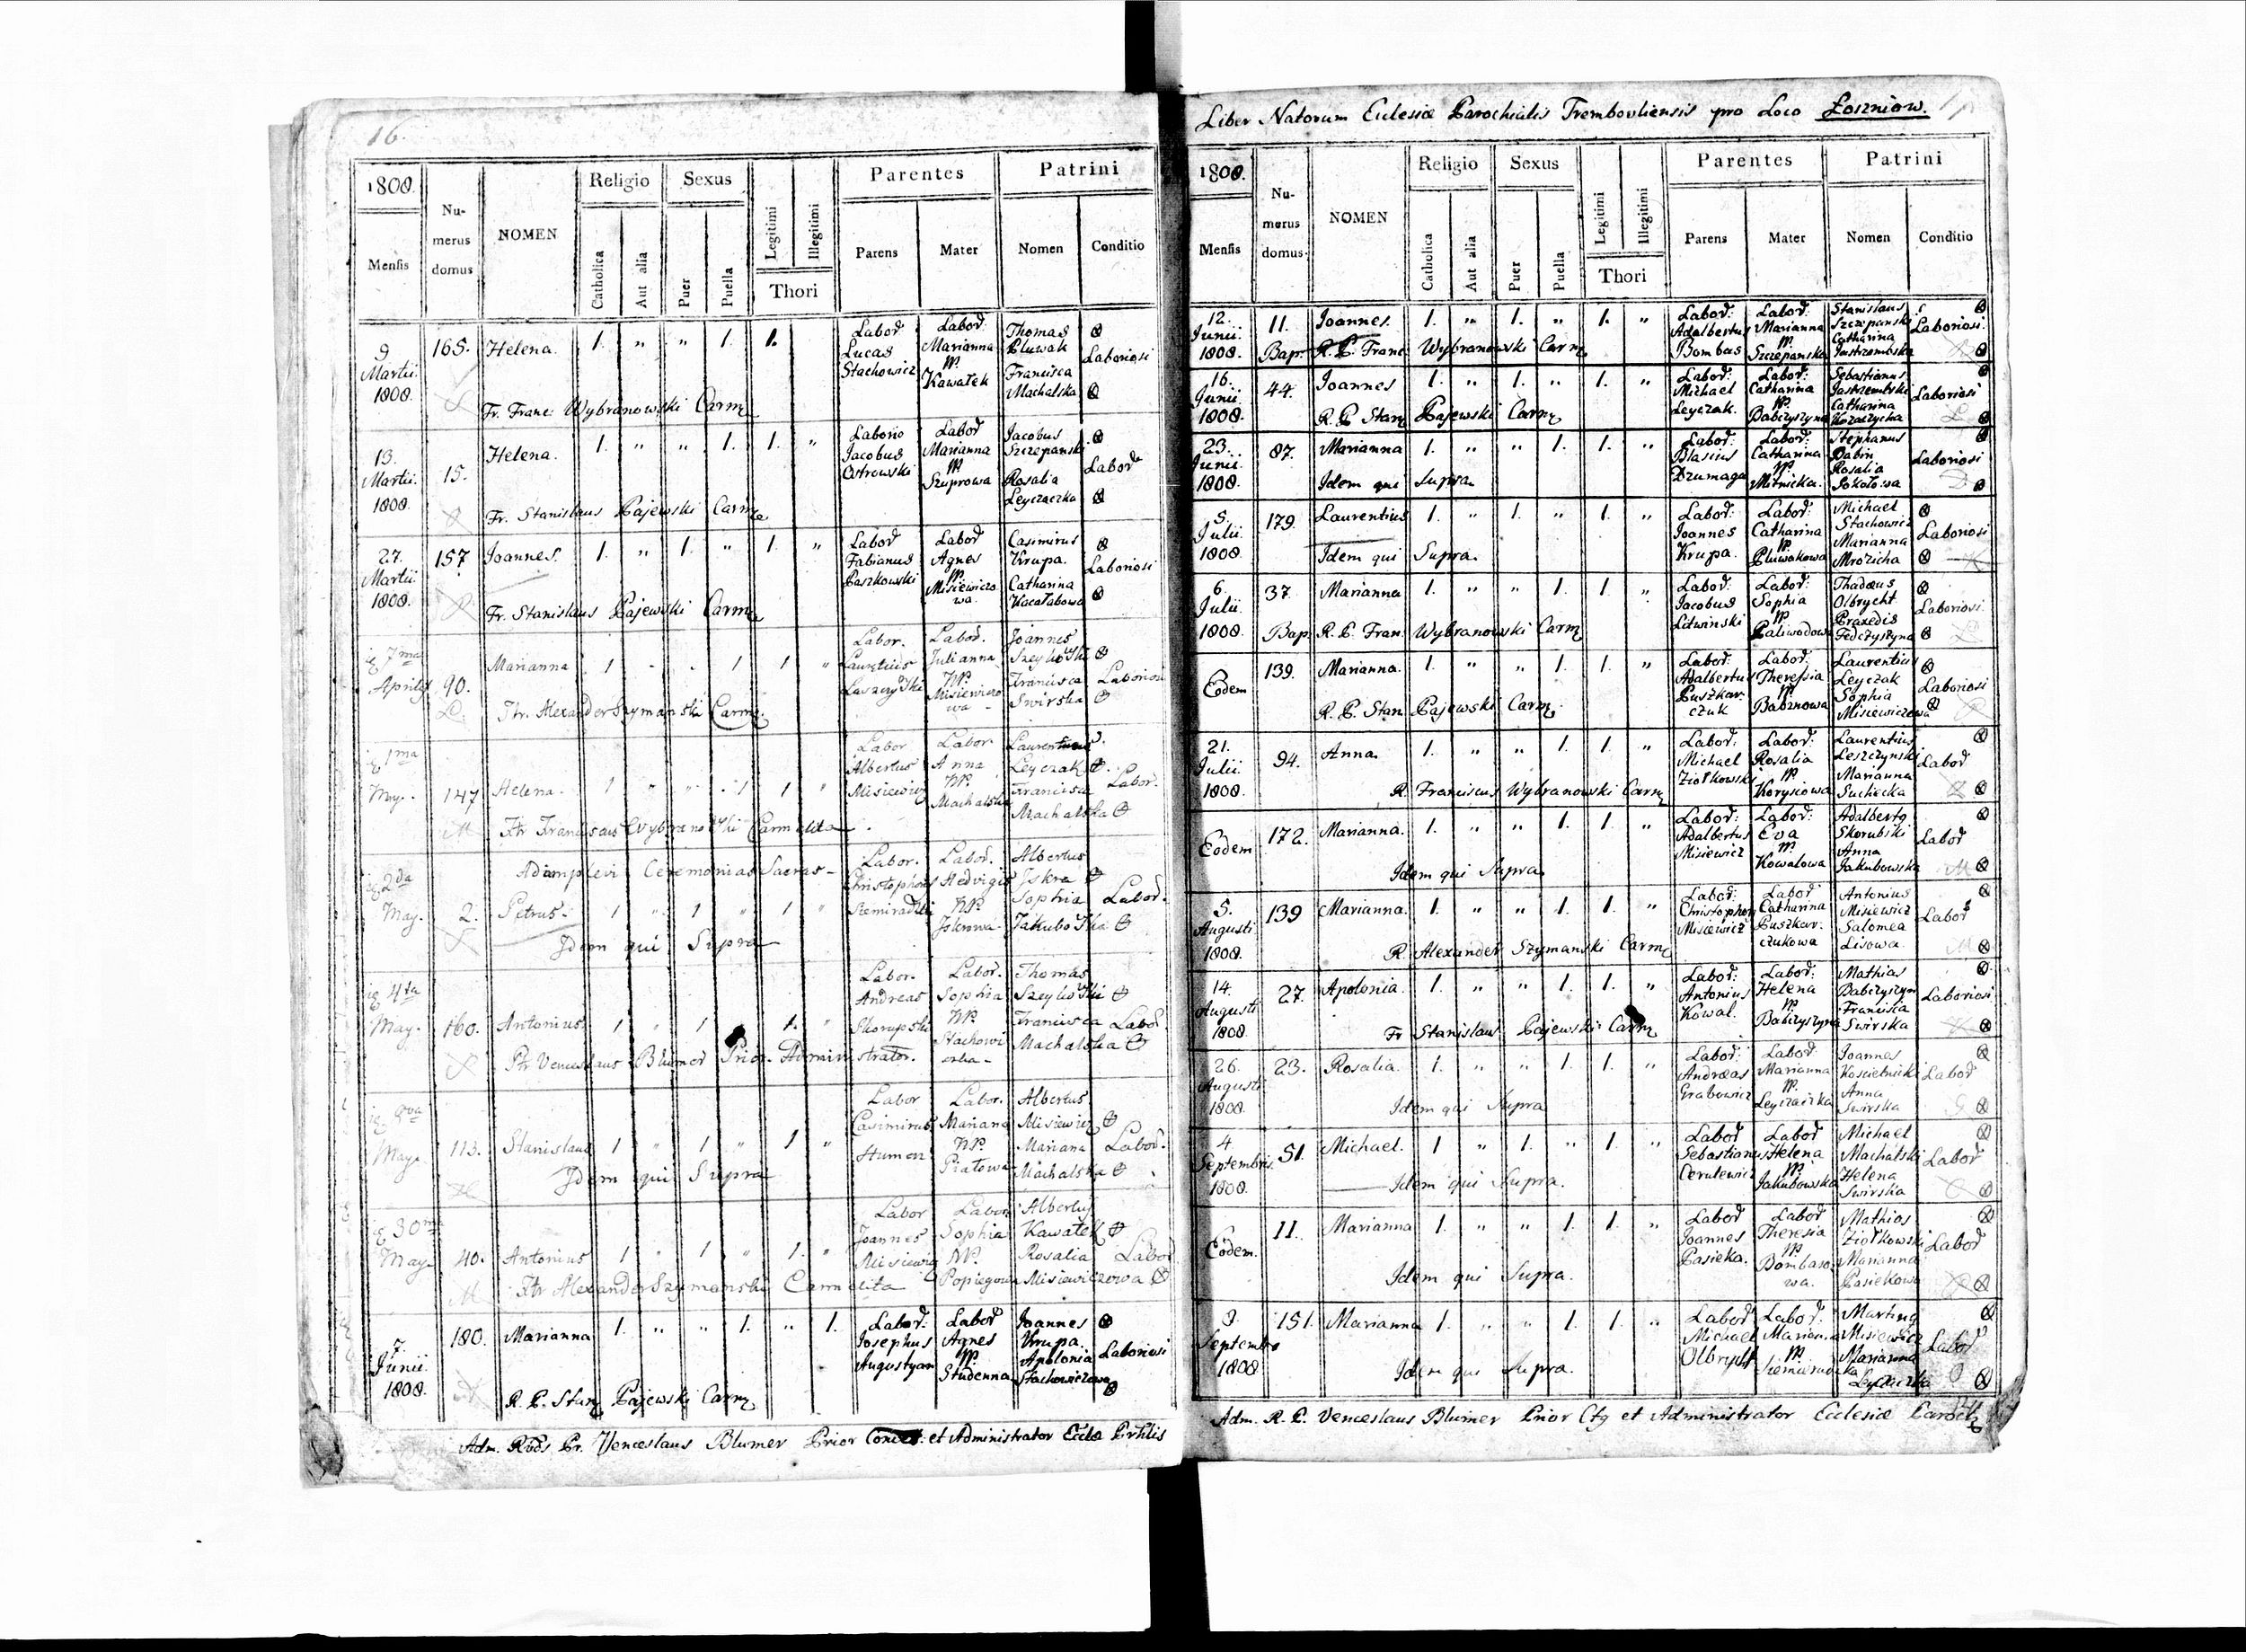 16.
1808.
Mensis
Numerus domus
NOMEN
Religio
Catholica
Aut alia
Sexus
Puer
Puella
Legitimi
Illegitimi
Thori
Parentes
Parens
Mater
Patrini
Nomen
Conditio
9 Martii 1808. 165. Helena. 1. " " 1. 1. Labor Lucas Stachowicz Labor Marianna Kawałek Thomas Pluwak Francisca Machalska Laboriosi
Fr. Franc: Wybranowski Carm
13. Martii. 1808 15. Helena. 1. " " 1. 1. " Laborio Jacobus Ostrowski Labor Marianna Szuprowa Jacobus Szczepanski Rosalia Leyczaczka Labor
Fr. Stanislaus Pajewski Carm
27. Martii 1808. 157 Joannes. 1. " 1. " 1. " Labor Fabianus Paszkowski Labor Agnes Misiewiczowa Casimirus Krupa. Catharina Kacałabowa Laboriosi
Fr. Stanislaus Pajewski Carm
7ma Aprilis 90. Marianna 1 - - 1 1 " Labor. Labor. Julianna Misiewiczowa Joannes Francisca Swirska Laboriosi
Fr. Alexander Szymanski Carm
1ma May. 147 Helena. 1 " " 1 1 " Labor Albertus Misiewicz Labor Anna Machalska Laurentius Leyczak Francisca Machalska Labor.
Fr Franciscus Wybranowski Carmelita
Adimplevi Ceremonias Sacras
2da May. 2. Petrus 1 " 1 " 1 " Labor. Christophorus Labor. Hedvigis Iskrowa Albertus Iskra Sophia Jakubowska Labor.
Idem qui Supra
4ta May. 160. Antonius 1 " 1 1. " Labor. Andreas Skorupski Labor. Sophia Thomas Francisca Machalska Labor
Fr Venceslaus Blumer Prior Administrator.
8va May. 113. Stanislaus 1 " 1 " 1 " Labor Casimirus Humen Labor. Mariana Piatowa Albertus Misiewicz Mariana Machalska Labor.
Idem qui Supra
30ma May. 40. Antonius 1 " 1 " 1. " Labor Joannes Misiewicz Labor Sophia Albertus Kawałek Rosalia Misiewiczowa Labor
Fr Alexander Szymanski Carmelita
7. Junii. 1808. 180. Marianna 1. " " 1. " 1. Labor: Josephus Augustyan Labor Agnes Studenna Joannes Krupa. Apolonia Stachowiczowa Laboriosi
R. P. Stan Pajewski Carm
Adm. Rnds Pr. Venceslaus Blumer Prior et Administrator Eccl
Liber Natorum Eclesiæ Parochialis Trembovliensis pro Loco Łoszniow.
1808.
Mensis
Numerus domus.
NOMEN
Religio
Catholica
Aut alia
Sexus
Puer
Puella
Legitimi
Illegitimi
Thori
Parentes
Parens
Mater
Patrini
Nomen
Conditio
12. Junii. 1808. 11. Joannes. 1. " 1. " 1. " Labor: Adalbertus Bombas Labor: Marianna Szczepanska Stanislaus Szczepanski Catharina Jastrzembska Laboriosi.
Bap. R. P. Franc Wybranowski Carm
16. Junii. 1808. 44. Joannes 1. " 1. " 1. " Labor: Michael Leyczak. Labor: Catharina Babczyszyna Sebastianus Jastrzembski Catharina Kozaczycha Laboriosi
R. P. Stan Pajewski Carm
23. Junii. 1808. 87. Marianna 1. " " 1. 1. " Labor: Blasius Drumaga Labor: Catharina Mitnicka. Stephanus Babin Rosalia Sokołowa Laboriosi
Idem qui Supra
5. Julii. 1808 179. Laurentius 1. " 1. " 1. " Labor: Joannes Krupa. Labor: Catharina Pluwakowa Michael Stachowicz Marianna Mrozicha Laboriosi
Idem qui Supra.
6. Julii 1808. 37. Marianna 1. " " 1. 1. " Labor: Jacobus Litwinski Labor: Sophia Paliwodowa Thadæus Olbrycht Praxedis Fedczyszyna Laboriosi.
Bap. R. P. Fran. Wybranowski Carm
Eodem 139. Marianna. 1. " " 1. 1. " Labor: Adalbertus Puszkarczuk Labor: Theresia Babznowa Laurentius Leyczak Sophia Misiewiczowa Laboriosi
R. P. Stan. Pajewski Carm
21. Julii. 1808. 94. Anna. 1. " " 1. 1. " Labor: Michael Ziołkowski Labor: Rosalia Korysiowa Laurentius Leszczynski Marianna Suchecka Labor
R. Franciscus Wybranowski Carm
Eodem 172. Marianna. 1. " " 1. 1. " Labor: Adalbertus Misiewicz Labor: Eva Kowalowa Adalbertg Skorubski Anna Jakubowska Labor
Idem qui Supra.
5. Augusti 1808. 139 Marianna. 1. " " 1. 1. " Labor: Christophor Misiewicz Labor Catharina Puszkarczukowa Antonius Misiewicz Salomea Lisowa Labor
R. Alexander Szymanski Carm
14. Augusti 1808 27. Apolonia. 1. " " 1. 1. " Labor: Antonius Kowal. Labor: Helena Babczyszyna Mathias Babczyszyn Francisca Swirska Laboriosi
Fr Stanislaus Pajewski Carm
26. Augusti 1808. 23. Rosalia. 1. " " 1. 1. " Labor: Andræas Grabowicz Labor Marianna Leyczaczka Joannes Koscielnicki Anna Swirska Labor
Idem qui Supra
4 Septembris 1808. 51. Michael. 1 " 1. " 1. " Labor Sebastianus Cerulewicz Labor Helena Jakubowska Michael Machalski Helena Swirska Labor
Idem qui Supra.
Eodem. 11. Marianna 1. " " 1. 1. " Labor Joannes Pasieka. Labor Theresia Bombasowa. Mathias Ziołkowski Marianna Pasiekowa Labor
Idem qui Supra.
9. Septembr 1808 151. Marianna 1. " " 1. 1. " Labor Michael Olbrycht Labor. Marian Marting Misiewicz Marianna Labor
Idem qui Supra.
Adm. R. P. Venceslaus Blumer Prior Ctg et Administrator Ecclesiæ Paroch